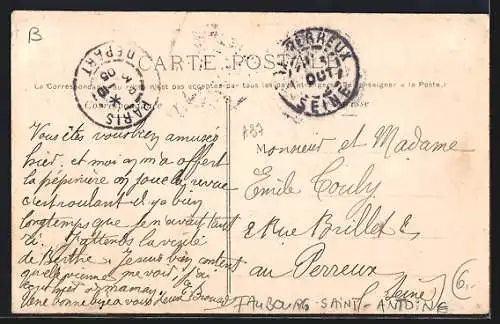 B
CARTE POSTALE
La Correspondance au recto n'est pas acceptée par tous les pays étrangers (se renseigner à la Poste.)
Correspondance
Adresse
PARIS DEPART
LE PERREUX
OUT
SEINE
A87
Vous êtes vous bien amusés
hier, et moi on m'a offert
la pépinière on joue la revue
c'est roulant il y a bien
longtemps que je n'avait tant
ri. J'attends la visite
de Berthe. Je suis bien content
qu'elle vienne me voir.
maman
bonne
à vous
Monsieur et Madame
Emile Couly
2 Rue Brillet
au Perreux
(Seine)
6-
FAUBOURG-SAINT-ANTOINE